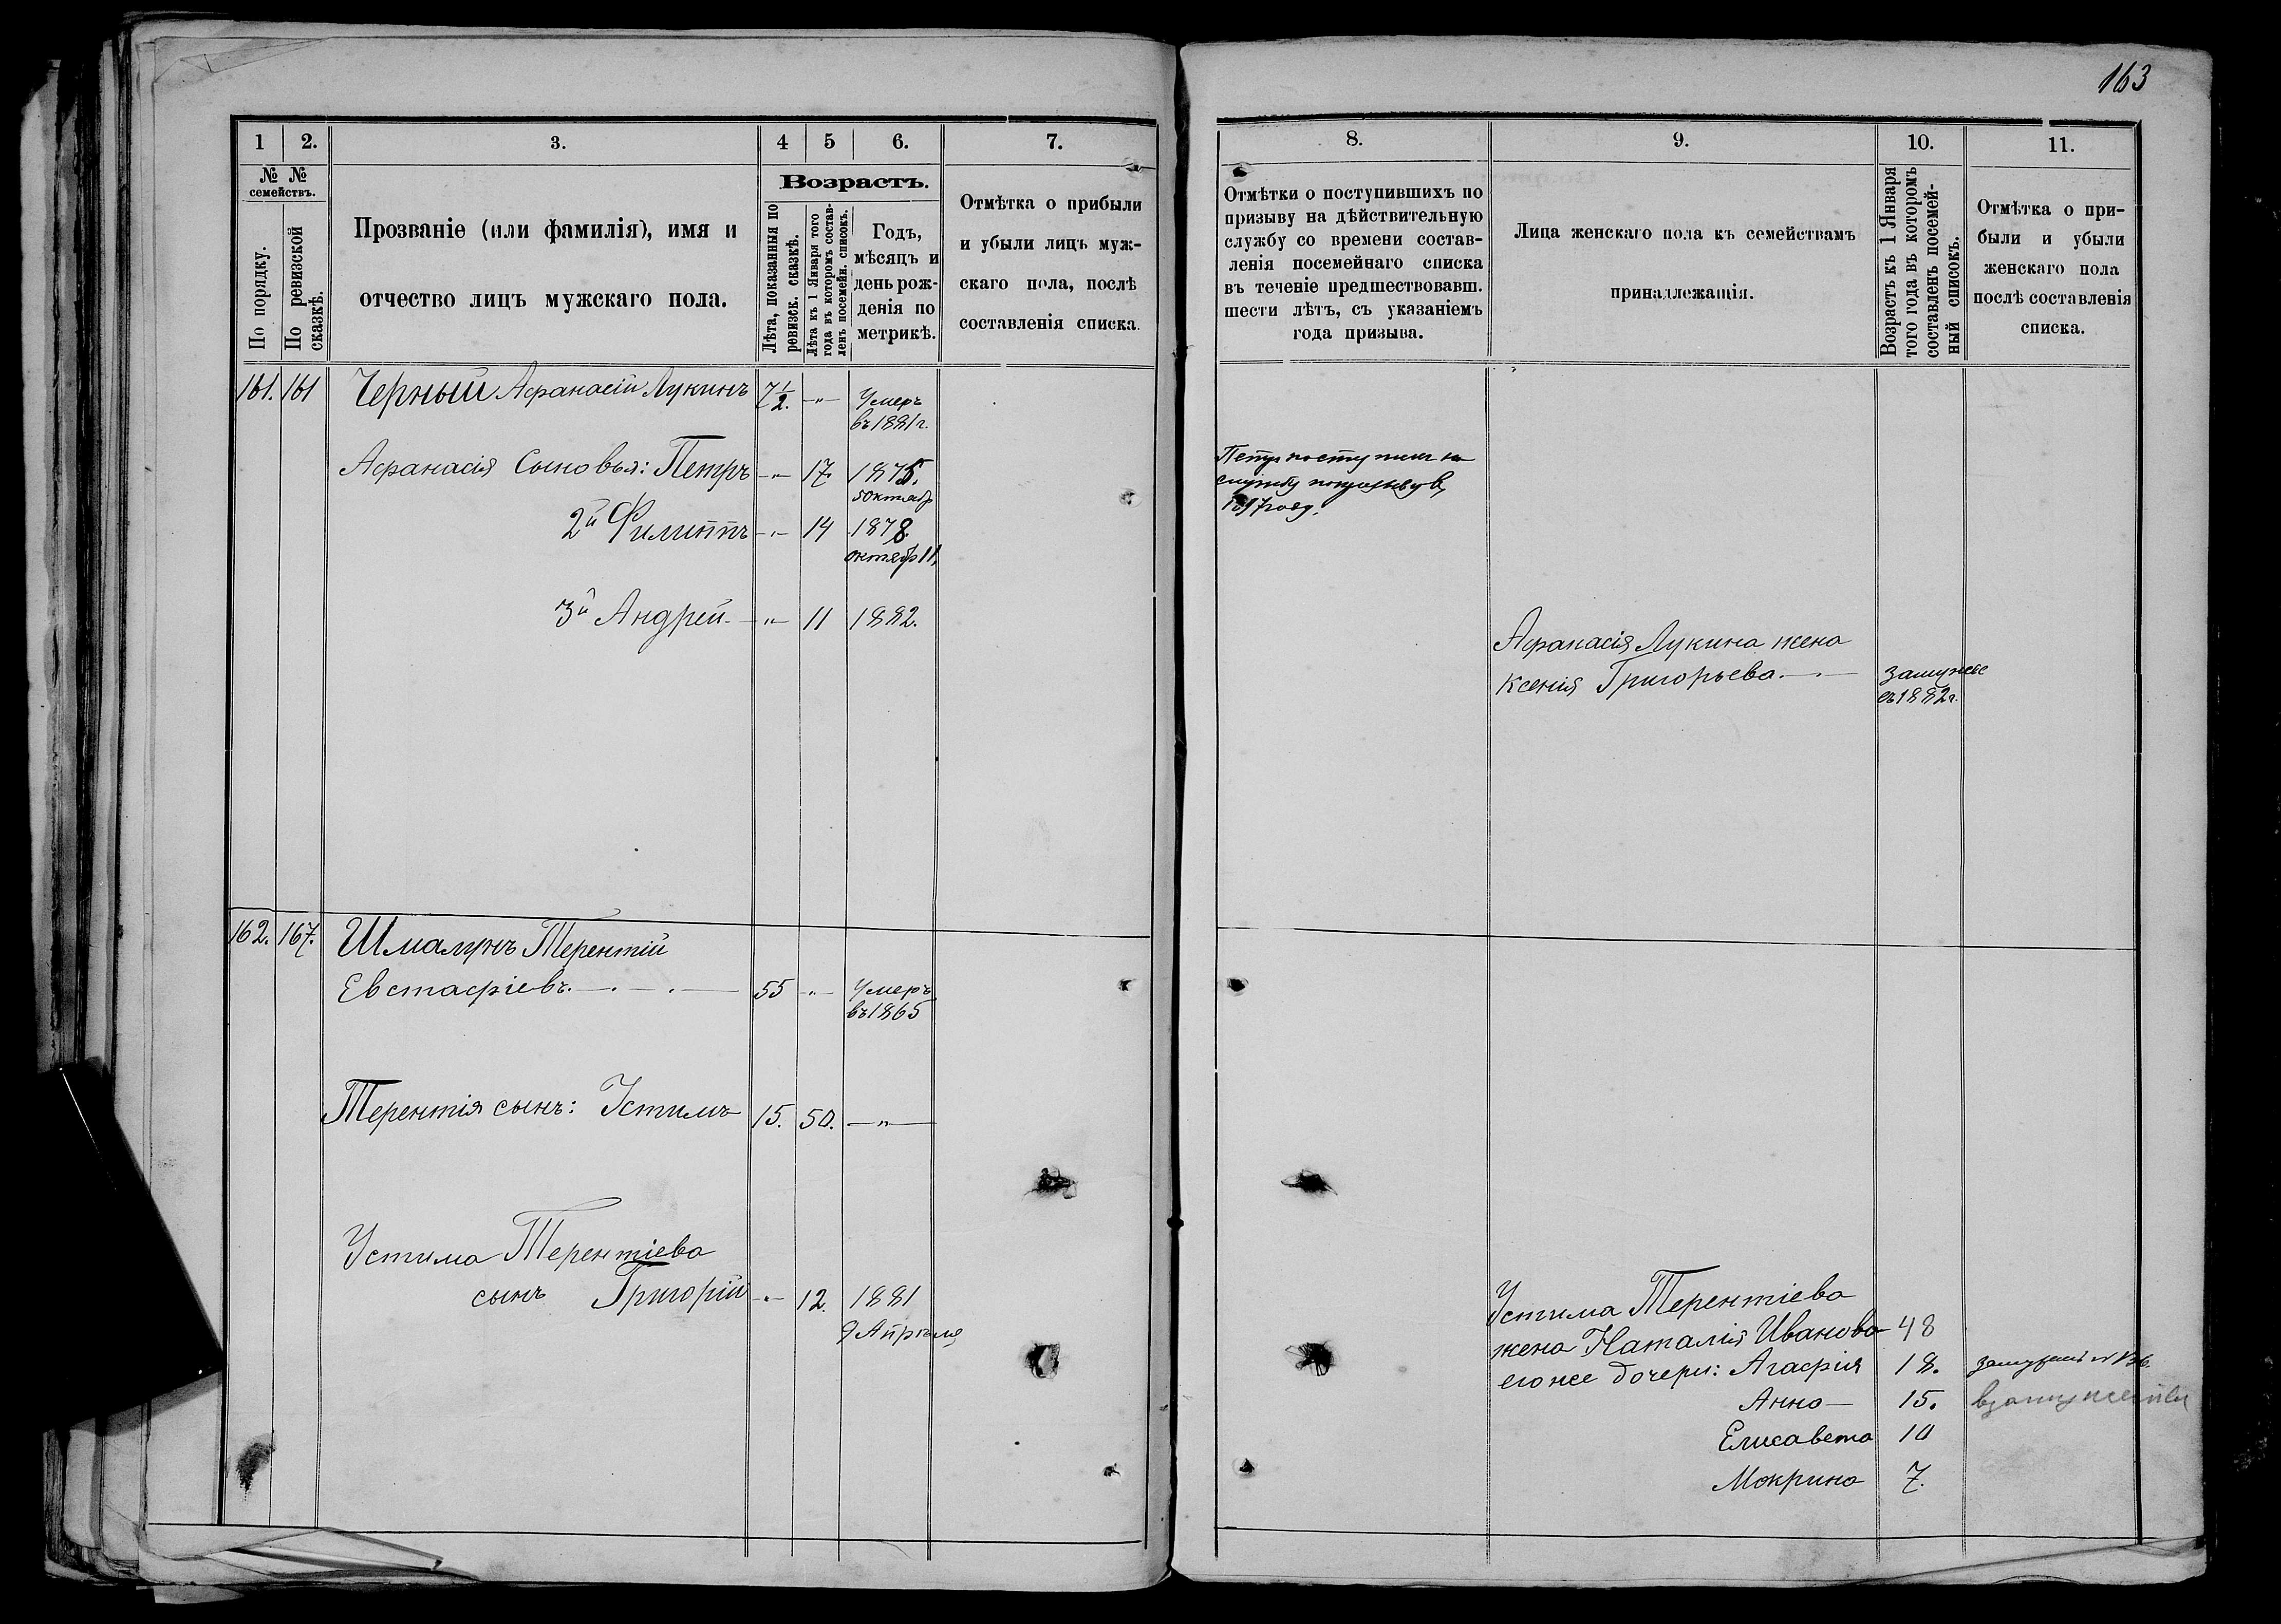 163
1 2. 3. 4 5 6. 7.
№ № семействъ.
По порядку.
По ревизской сказкѣ.
Прозваніе (или фамилія), имя и
отчество лицъ мужскаго пола.
Возрастъ.
Лѣта, показанныя по
ревизск. сказкѣ.
Лѣта къ 1 Января того
года въ которомъ состав-
ленъ посемейн. списокъ.
Годъ,
мѣсяцъ и
день рож-
денія по
метрикѣ.
Отмѣтка о прибыли
и убыли лицъ муж-
скаго пола, послѣ
составленія списка.
161. 161 Черный Афанасій Лукинъ 7½. -„- Умеръ
въ 1881 г.
Афанасія Сыновья: Петръ -„- 17. 1875.
5 Октябр
2й Филиппъ -„- 14 1878.
октябр 11,
3й Андрей -„- 11 1882.
162. 167. Шмалунъ Терентій
Евстафіевъ. 55 -„- Умеръ
въ 1865
Терентія сынъ: Устимъ 15. 50. -„-
Устима Терентіева
сынъ Григорій -„- 12. 1881
9 Апрѣля
8. 9. 10. 11.
Отмѣтки о поступившихъ по
призыву на дѣйствительную
службу со времени состав-
ленія посемейнаго списка
въ теченіе предшествовавш.
шести лѣтъ, съ указаніемъ
года призыва.
Лица женскаго пола къ семействамъ
принадлежащія.
Возрастъ къ 1 Января
того года въ которомъ
составленъ посемей-
ный списокъ.
Отмѣтка о при-
были и убыли
женскаго пола
послѣ составленія
списка.
Петръ поступилъ на
службу по призыву в
1897 году.
Афанасія Лукина жена
Ксенія Григорьева. замужье
съ 1882 г.
Устима Терентіева
жена Наталія Иванова 48
его же дочери: Агафія 18.
Анна 15. взамужестве
Елисавета 10
Мокрина 7.